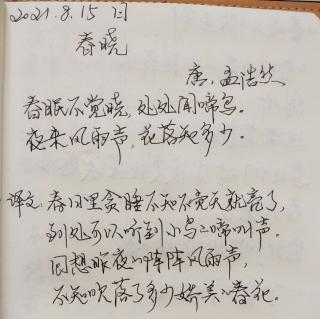 2021.8.15 日
春晓
唐,孟浩然
春眠不觉晓,处处闻啼鸟。
夜来风雨声,花落知多少。
译文:春日里贪睡不知不觉天就亮了,
到处可以听到小鸟的啼叫声。
回想昨夜的阵阵风雨声,
不知吹落了多少娇美的春花。